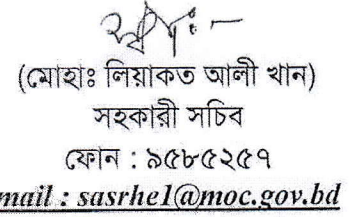 (মোহাঃ লিয়াকত আলী খান)
সহকারী সচিব
ফোন : ৯৫৮৫২৫৭
mail : sasrhe1@moc.gov.bd